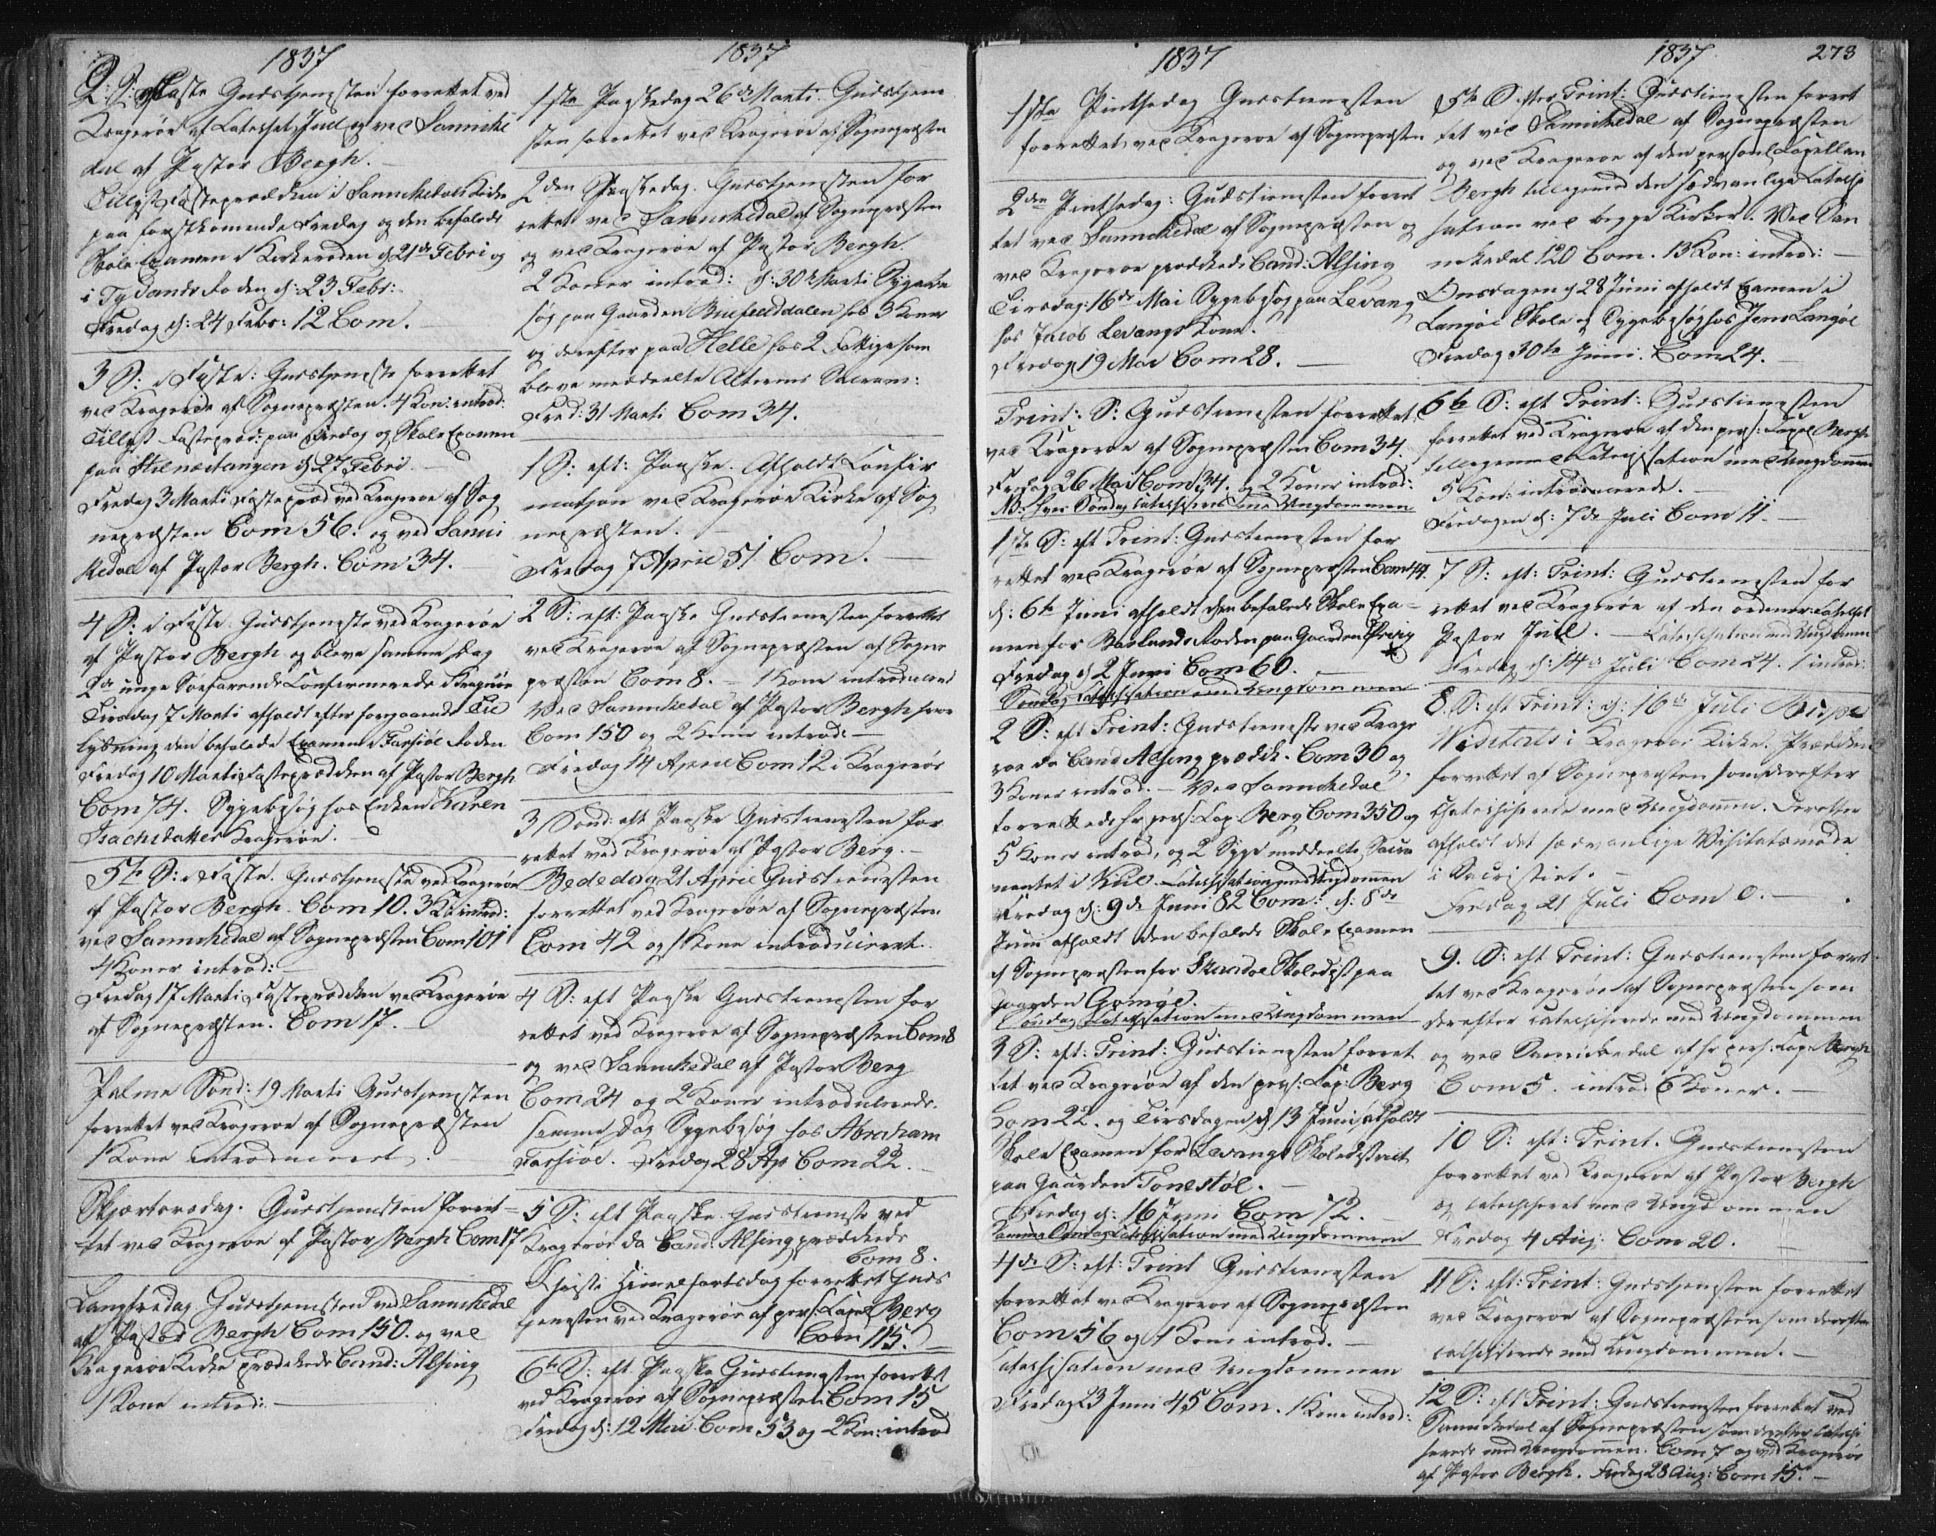 1837
2 S: i Faste Gudstjenesten forrettet ved
Kragerøe af Catechet Juel og ved Sannike
dal af Pastor Bergh.
Tillyst Fasteprædiken i Sannikedals Kirke
paa førstkomende Fredag og den befalede
Skole Examen i Kirkeroden d: 21de Febri og
i Tydands Roden d: 23 Febr:
Fredag d: 24 Febr: 12 Com.
3 S: i Faste: Gudstjeneste forrettet
ved Kragerøe af Sognepræsten. 4 Kon: introd:
Tillyst Fastepræd: paa Fredag og Skole Examen
paa Steenstangen d 27 Febri.
Fredag 3 Marti Fastepræd ved Kragerøe af Sog
nepræsten Com 56. og ved Sanni
kedal af Pastor Bergh. Com 34.
4 S: i Faste Gudstjeneste ved Kragerøe
af Pastor Bergh og bleve samme Dag
2de unge Søefarende Confirmerede i Kragerøe
Tirsdag 7 Marti afholdt efter foregaaende Til
lysning den befalede Examen i Farsiøe Roden
Fredag 10 Marti Fasteprædiken af Pastor Bergh
Com 74. Sygebesøg hos Enken Karen
Isachsdatter Kragerøe.
5te S: i Faste. Gudstjeneste ved Kragerøe
af Pastor Bergh. Com 10. 3 Ko: introd:
ved Sannikedal af Sognepræsten Com 101
4 Koner introd:
Fredag 17 Marti Fasteprædiken ved Kragerøe
af Sognepræsten. Com 17.
Palme Sønd: 19 Marti Gudstjenesten
forrettet ved Kragerøe af Sognepræsten
1 Kone introduceret.
Skjærtorsdag. Gudstjenesten forret=
tet ved Kragerøe af Pastor Bergh Com 17
Langfredag Gudstjenesten ved Sannikedal
af Pastor Bergh Com 150. og ved
Kragerøe Kirke prædikede Cand: Alsing
1 Kone introd:
1837
1ste Paaskedag 26de Marti. Gudstjene
sten forrettet ved Kragerøe af Sognepræsten
2den Paaskedag. Gudstjenesten for
rettet ved Sannikedal af Sognepræsten
og ved Kragerøe af Pastor Bergh
2 Koner introd: d: 30te Marti Sygebe
søg paa Gaarden hos 3 Koner
og derefter paa Helle hos 2 Fattige som
bleve meddeelte Alterens Sacram:
Fred: 31 Marti Com 34.
1 S: eft: Paaske. Afholdt Confir
mation ved Kragerøe Kirke af Sog
nepræsten.
Fredag 7 April 51 Com.
2 S: eft: Paaske Gudstienesten forrettet
ved Kragerøe af Sognepræsten af Sogne
præsten Com 8. - 1 Kone introduceret
Ved Sannikedal af Pastor Bergh hvor
Com 150 og 2 Koner introd: -
Fredag 14 April Com 12 i Kragerøe
3 Sønd: eft Paaske Gudstienesten for
rettet ved Kragerøe af Pastor Berg. -
Bededag 21 April Gudstienesten
forrettet ved Kragerøe af Sognepræsten
Com 42 og 1 Kone introduceret.
4 S: eft Paaske Gudstienesten for
rettet ved Kragerøe af Sognepræsten Com 8
og ved Sannikedal af Pastor Berg
Com 24 og 2 Koner introducerede.
samme Dag Sygebesøg hos Abraham
Farsiøe. Fredag 28 Ap Com 22.
5 S: eft Paaske Gudstieneste ved
Kragerøe da Cand: Alsing prædikede
Com 8.
Christi Himmelfartsdag forrettet Guds
tjenesten ved Kragerøe af pers: Capel Berg
Com 115.
6te S: eft Paaske Gudstienesten forrettet
ved Kragerøe af Sognepræsten Com 15
Fredag d: 12 Mai Com 53 og 2 Kon: introd
1837
1ste Pintsedag Gudstienesten
forrettet ved Kragerøe af Sognepræsten
2den Pintsedag: Gudstienesten forret
tet ved Sannikedal af Sognepræsten og
ved Kragerøe prædikede Cand: Alsing
Tirsdag 16de Mai Sygebesøg paa Levang
hos Jacob Levangs Kone.
Fredag 19 Mai Com 28.
Trinit: S: Gudstienesten forrettet
ved Kragerøe af Sognepræsten Com 34.
Fredag 26 Mai Com 34. og 2 Koner introd:
NB. hver Søndag catechiseres med Ungdommen
1ste S: eft Trinit: Gudstienesten for
rettet ved Kragerøe af Sognepræsten Com 44.
d: 6te Juni afholdt den befalede Skole Exa=
men for Barlands Roden paa Gaarden
Fredag d 2 Juni Com 60.
Søndag Catechisation med Ungdommen
2 S: eft Trint: Gudstieneste ved Krage
røe da Cand Alsing prædik. Com 30 og
3 Koner introd. - Ved Sannikedal
forrettede hr pers: Cap Berg Com 350 og
5 Koner introd, og 2 Syge meddeelte Sacra
mentet i Catechisation med Ungdommen
Fredag d: 9de Juni 82 Com: d: 8de
Juni afholdt den befalede Skole Examen
af Sognepræsten for Skoledist paa
Gaarden Gomøe.
Søndag Catechisation med Ungdommen
3 S: eft: Trint: Gudstienesten forret
tet ved Kragerøe af den pers: Cap: Berg
Com 22. og Tirsdagen d 13 Juni afholdt
Skole Examen for Levangs Skoledistrict
paa Gaarden Tonestøl.
Fredag d: 16 Juni Com 72.
Samme Søndag Catechisation med Ungdommen
4de S: eft: Trint Gudstienesten
forrettet ved Kragerøe af Sognepræsten
Com 56 og 1 Kone introd. -
Catechisation med Ungdommen
Fredag 23 Juni 45 Com. 1 Kone introd:
1837. 273
5te S: efter Trint: Gudstienesten forret
tet ved Sannikedal af Sognepræsten
og ved Kragerøe af den personl. Capellan
Bergh tilligemed den sædvanlige Catechi
sation ved begge Kirker. Ved San
nikedal 120 Com. 13 Kon: introd: -
Onsdagen d 28 Juni afholdt Examen i
Langøe Skole og Sygebesøg hos Jens Langøe
Fredag 30te Juni. Com 24.
6te S: eft Trint: Gudstienesten
forrettet ved Kragerøe af den pers: Capel Bergh
tilligemed Catechisation med Ungdommen
5 Kon: introducerede.
Fredagen d: 7de Juli Com 11. -
7 S: eft: Trint: Gudstienesten for
rettet ved Kragerøe af den ordiner: Catechet
Pastor Juel. - Catechisation med Ungdommen
Fredag d: 14de Juli Com 24. 1 introd:
8 S: eft Trint: d: 16de Juli Bispe
Visitats i Kragerøe Kirke. Prædiken
forrettet af Sognepræsten som derefter
Catechiserede med Ungdommen. Derefter
afholdt det sædvanlige Visitatsmøde
i Sacristiet.
Fredag 21 Juli Com 0. -
9. S: eft Trint: Gudstienesten forret
tet ved Kragerøe af Sognepræsten som
derefter catechiserede med Ungdommen
og ved Sannikedal af hr pers: Cap. Bergh
Com 5. introd 6 Koner. -
10 S: eft: Trint. Gudstienesten
forrettet ved Kragerøe af Pastor Bergh
og catechiseret med Ungdommen
Fredag 4 Aug: Com 20. -
11 S: eft: Trint: Gudstjenesten forrettet
ved Kragerøe af Sognepræsten som derefter
catechiserede med Ungdommen. -
12 S: eft Trint: Gudstienesten forrettet ved
Sannikedal af Sognepræsten som derefter catechi
serede med Ungdommen. Com 7 og ved Kragerøe
af Pastor Bergh. Fredag 28 Aug: Com 15. -